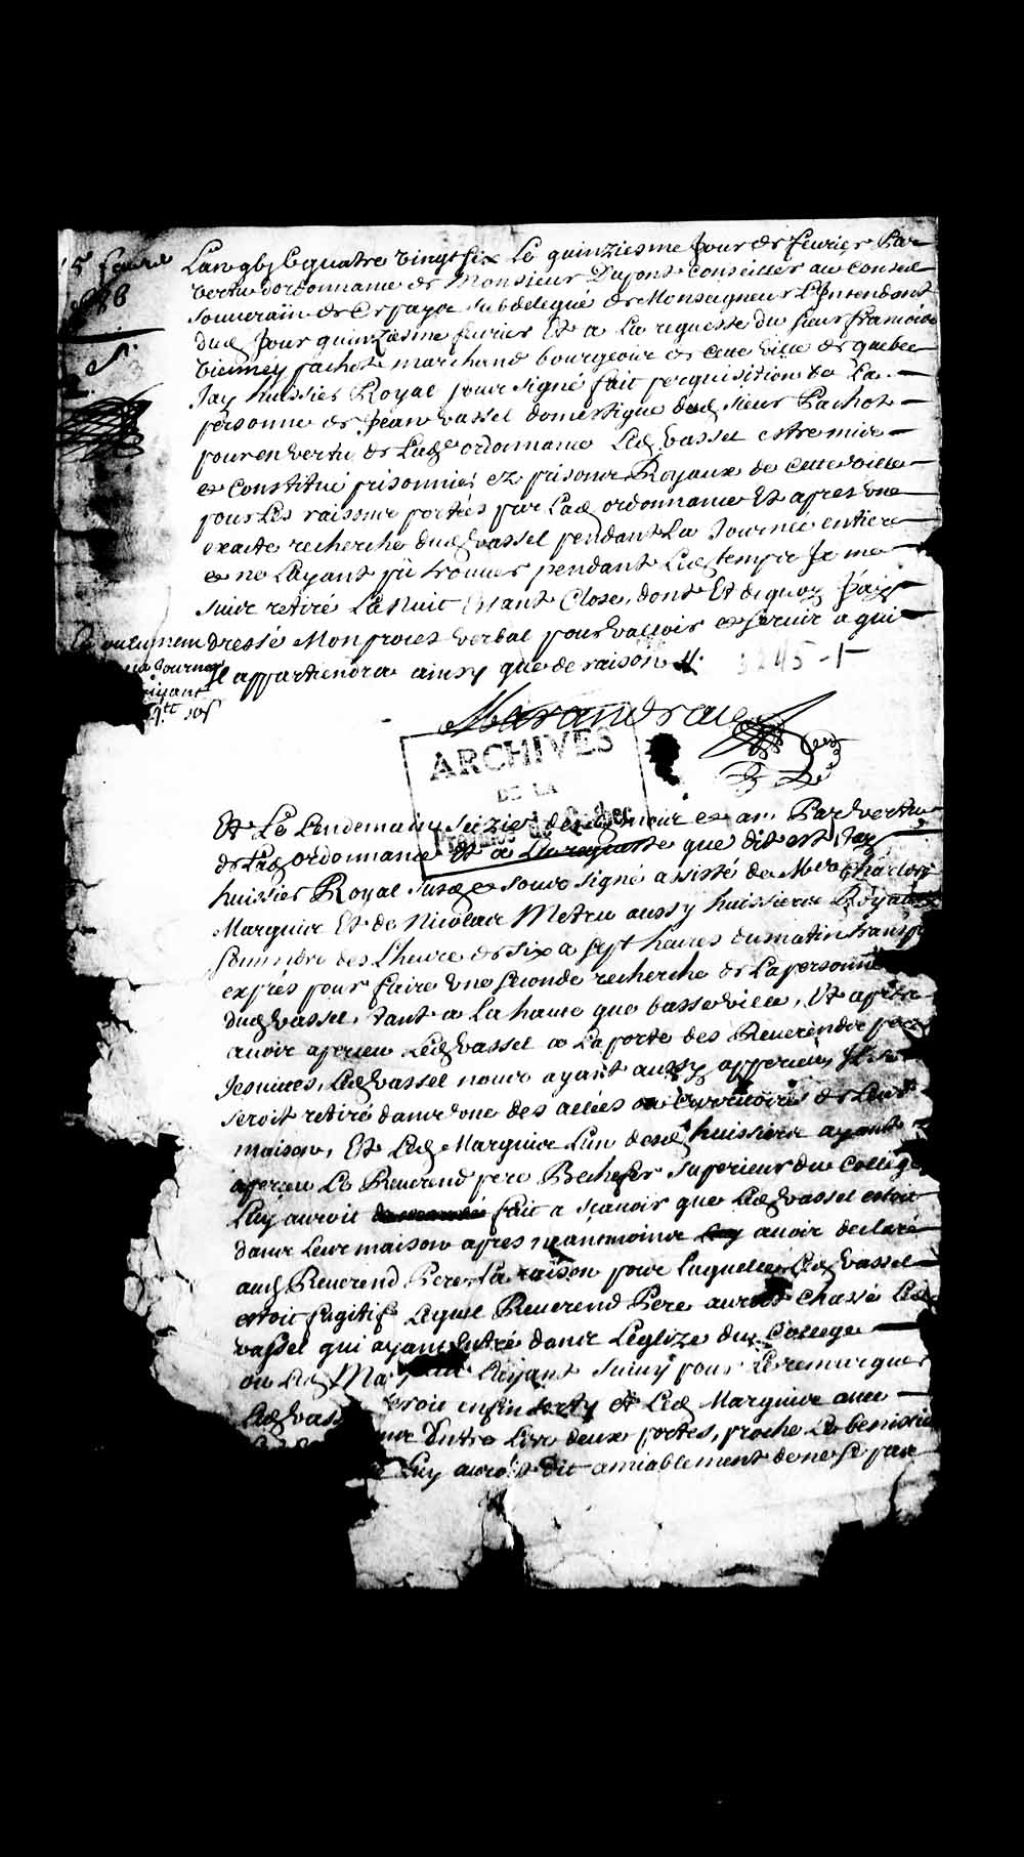 5e feuvr
L'an gbjc quatre vingt six Le quinziesme Jour de feurier Par
vertu dordonnance de Monsieur Dupont conseiller au Conseil
souuerain de Ce paye subdelegué de Monseigneur L'Intendant
dud Jour quinziesme feurier Et a La requeste du sieur francois
viennéy pachot marchand bourgeois de cette ville de quebec
Jay huissier Royal sousigné fait perquisition de La
personne de Jean vassel domestique dud sieur Pachot
pour en vertu de Lade ordonnance Led vassel estre mis
et Constitué prisonnier ez prisons Royaux de cette ville
pour Les raisons portées par Lad ordonnance Et apres une
exacte recherche dud vassel pendant La Journée entiere
et ne Layant pû trouuer pendant Led temps Je me
suis retiré La Nuit Estant Close, dont Et dequoy J'ay
dressé Mon proces verbal pour valloir et seruir a qui
Il appartiendra ainsy que de raison
3245-1
Marandeau
ARCHIVES
DE LA
Province de Québec
Et Le Lendemain seizie desd mois et an Par vertu
de Lad ordonnance Et a La requeste que dit est Jay
huissier Royal susd et sous signé assisté de Mes Charles
Marquis Et de Nicolas Metru aussy huissiers Royaux
sommes des L'heure de six a sept heures du matin transp
exprés pour faire une seconde recherche de La personne
dud vassel, tant a La haute que basse ville, Et apres
auoir aperceu Led vassel a La porte des Reuerends peres
Jesuites, Led vassel nous ayant aussy apperceu Il se
seroit retiré dans une des allées ou Corridoirs de Leur
maison, Et Led Marquis L'un desd huissiers ayant
aperceu Le Reuerend pere Bechefer superieur du College
Luy auroit fait a sçauoir que Led vassel estoit
dans Leur maison apres neantmoins auoir declaré
aud Reuerend Pere La raison pour Laquelle Led vassel
estoit fugitif Lequel Reuerend Pere auroit chassé Led
vassel qui ayant Entré dans L'eglize du College
ou Led Mar Layant suiuy pour Le remarquer
Led vass seroit enfin sorty et Led Marquis auec
Entre Les deux portes, proche Le benistier
Luy auroit dit amiablement de ne se pas